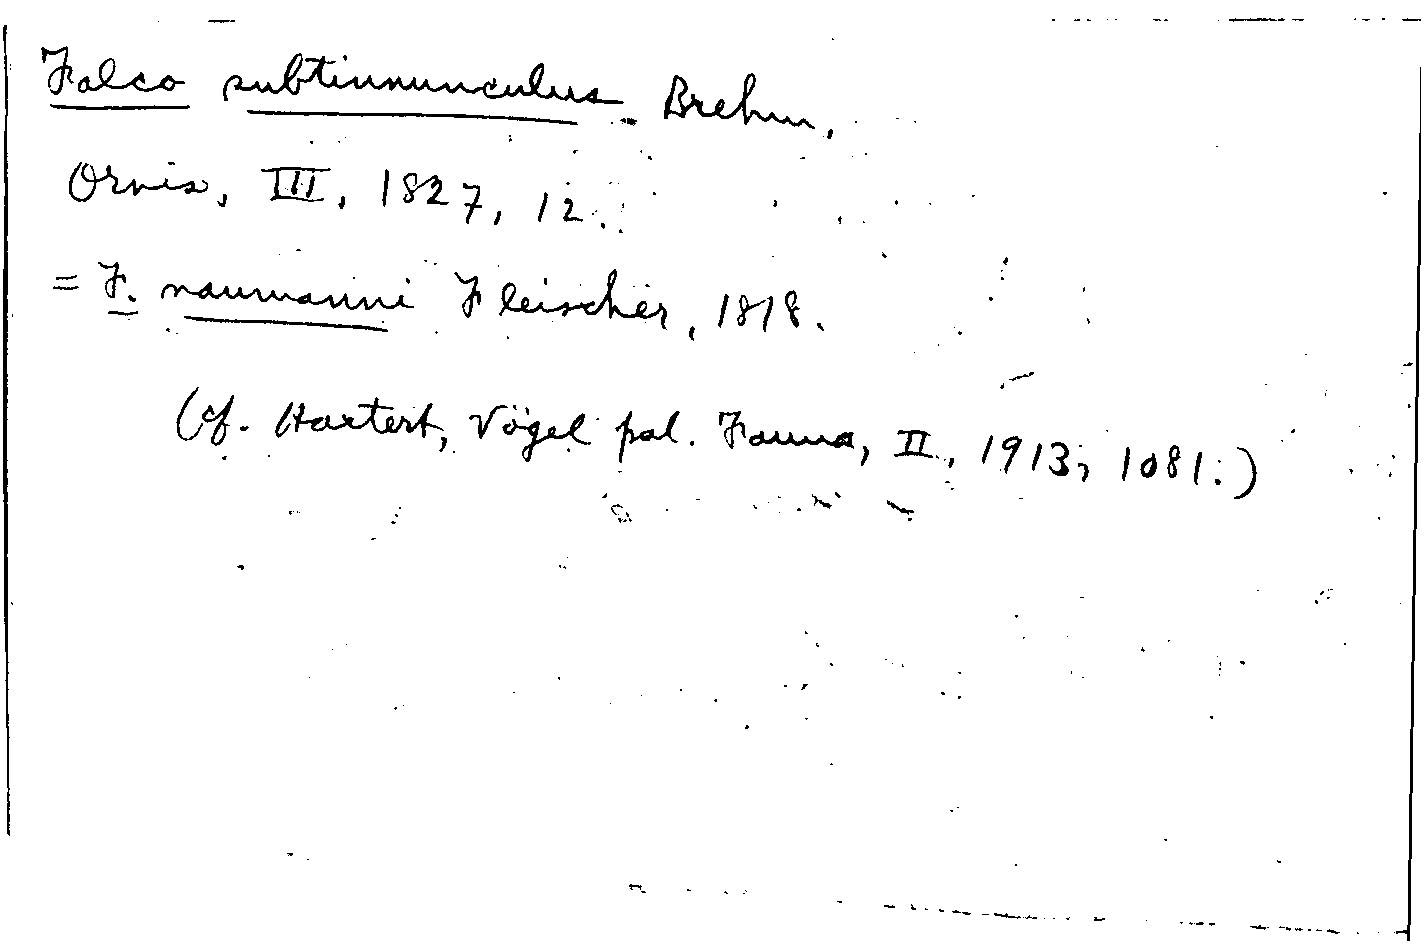 Falco subtinnunculus Brehm,
Ornis, III, 1827, 12.
= F. naumanni Fleischer, 1818.
(cf. Hartert, Vögel pal. Fauna, II, 1913, 1081.)